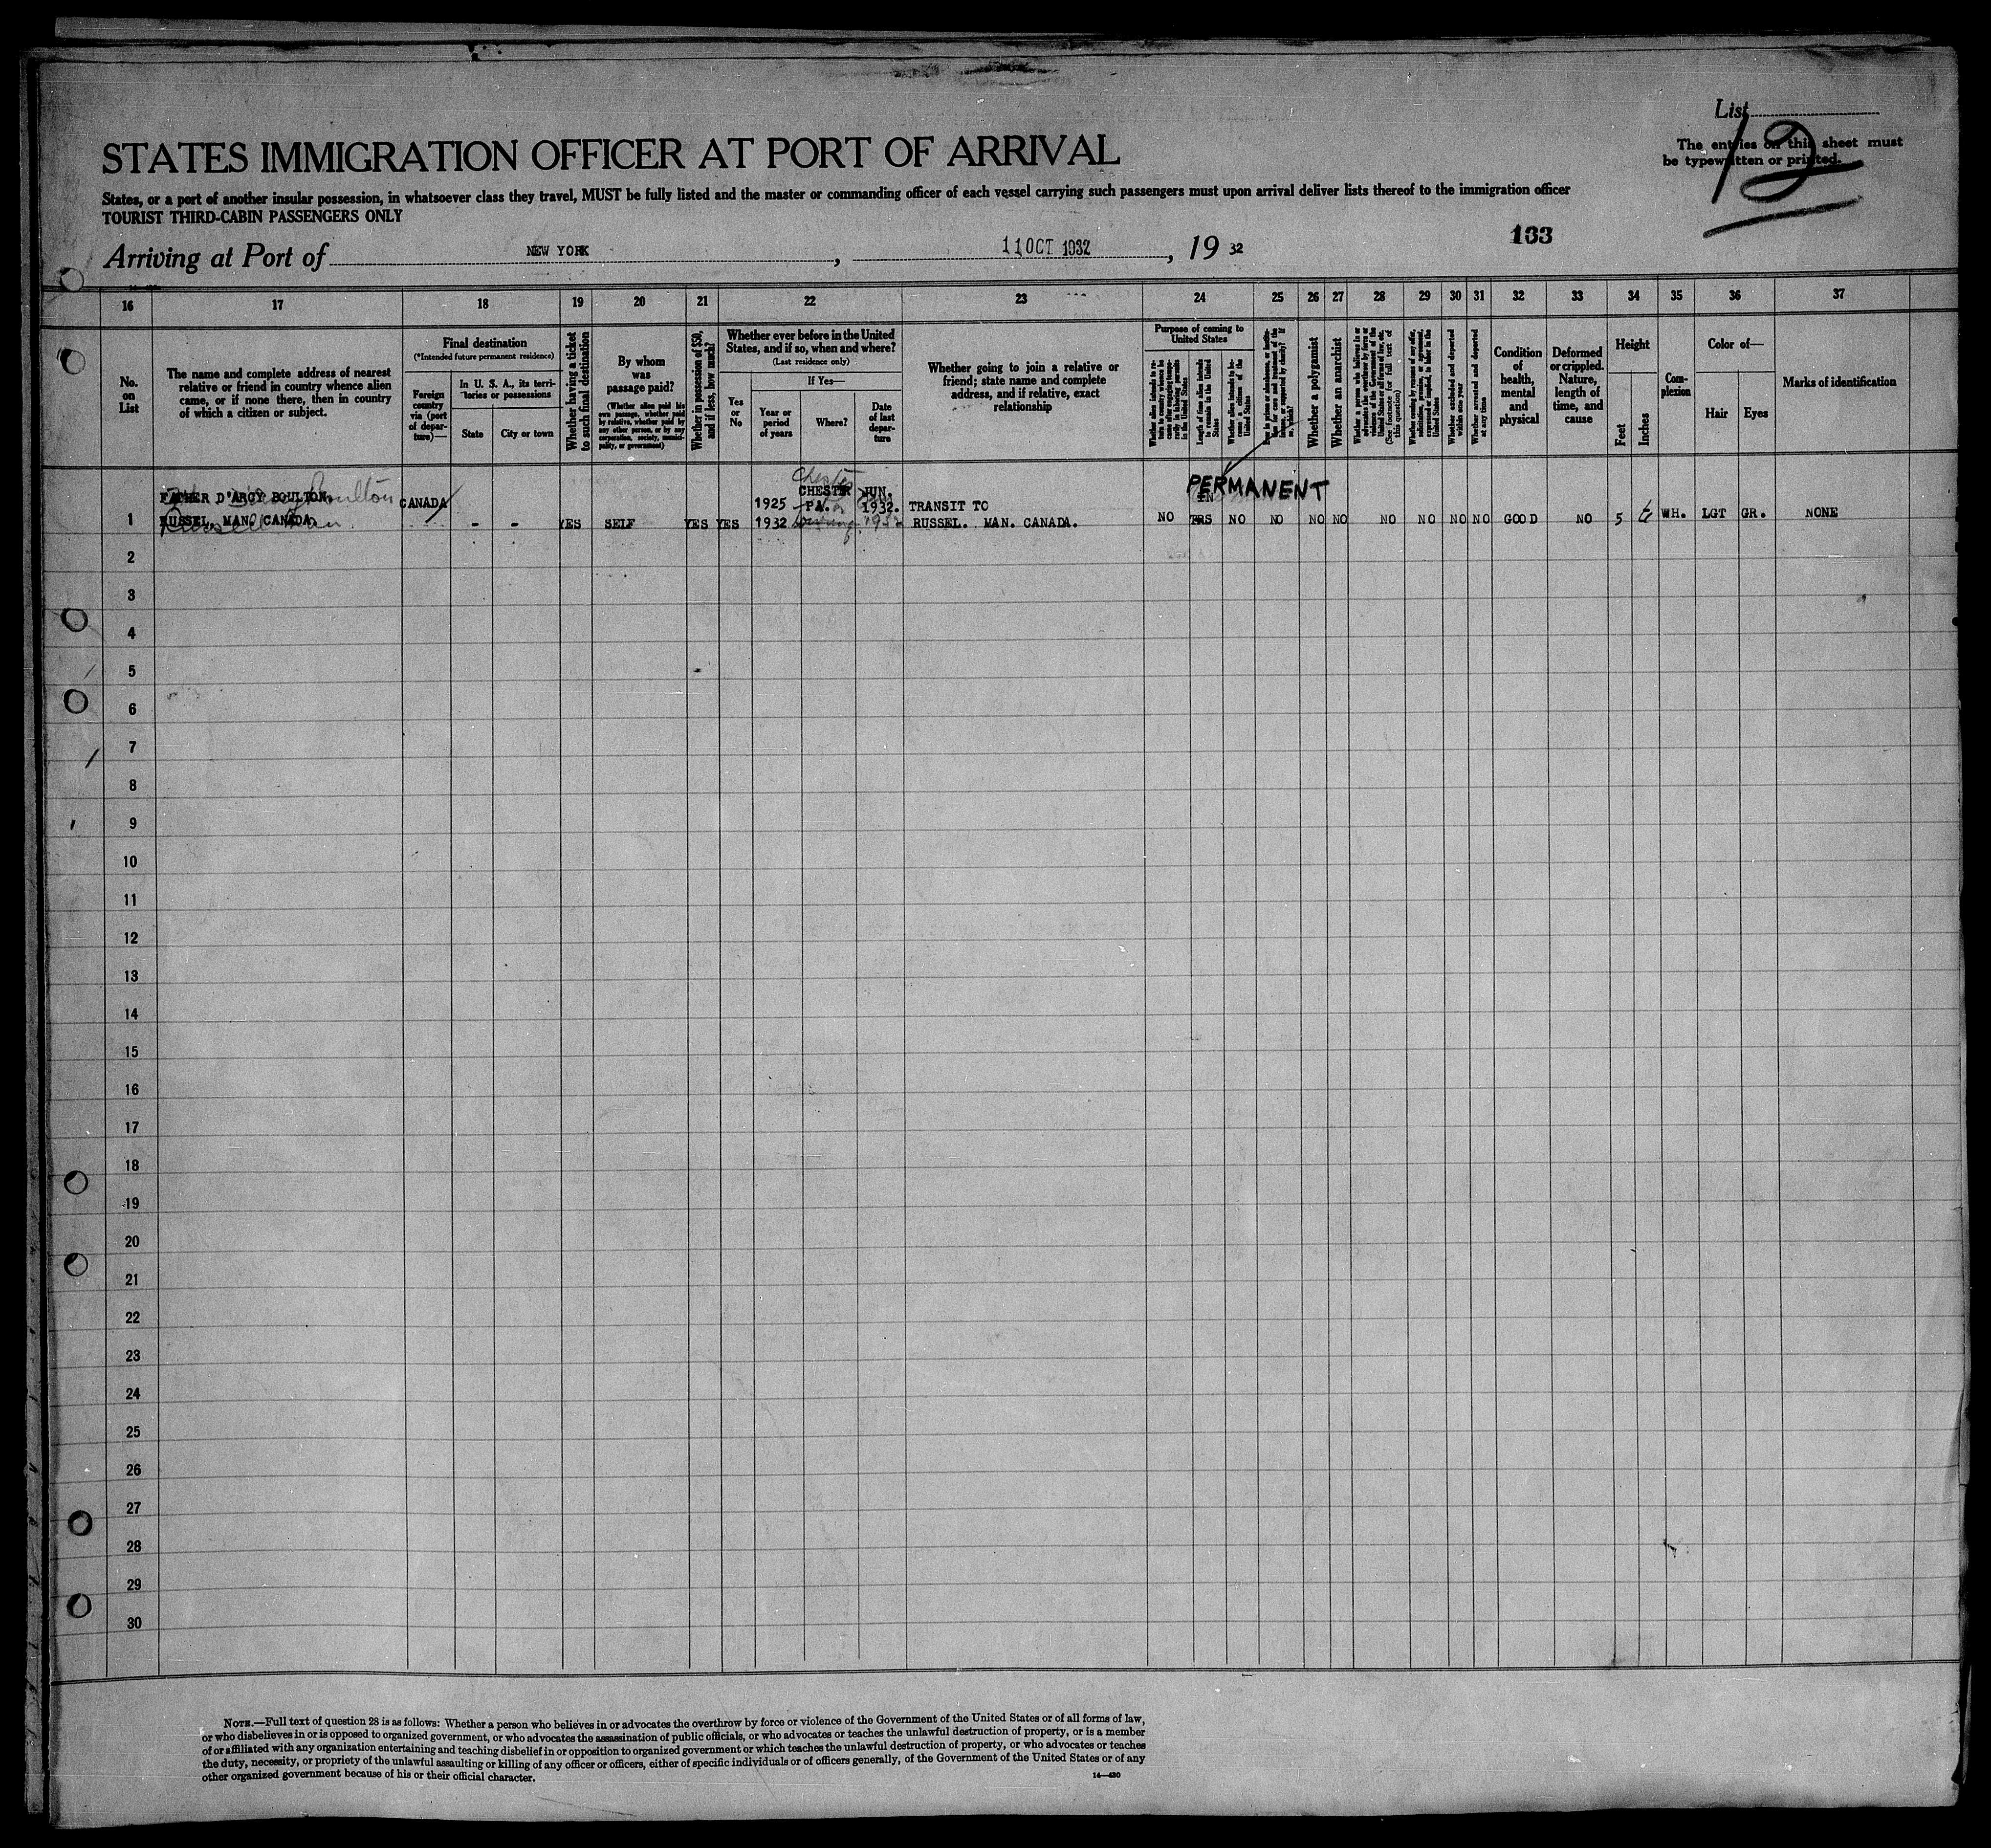 List
12
The entries on this sheet must
be typewritten or printed.
STATES IMMIGRATION OFFICER AT PORT OF ARRIVAL
States, or a port of another insular possession, in whatsoever class they travel, MUST be fully listed and the master or commanding officer of each vessel carrying such passengers must upon arrival deliver lists thereof to the immigration officer
TOURIST THIRD-CABIN PASSENGERS ONLY
133
Arriving at Port of NEW YORK, 11 OCT 1932, 19 32
16 17 18 19 20 21 22 23 24 25 26 27 28 29 30 31 32 33 34 35 36 37
No.
on
List
The name and complete address of nearest
relative or friend in country whence alien
came, or if none there, then in country
of which a citizen or subject.
Final destination
(*Intended future permanent residence)
Foreign
country
via (port
of depar-
ture)—
In U. S. A., its terri-
tories or possessions
State
City or town
Whether having a ticket
to such final destination
By whom
was
passage paid?
(Whether alien paid his
own passage, whether paid
by relative, whether paid by
any other person, or by any
corporation, society, munici-
pality, or government)
Whether in possession of $50,
and if less, how much?
Whether ever before in the United
States, and if so, when and where?
(Last residence only)
Yes
or
No
If Yes—
Year or
period
of years
Where?
Date
of last
depar-
ture
Whether going to join a relative or
friend; state name and complete
address, and if relative, exact
relationship
Purpose of coming to
United States
Length of time alien intends
to remain in the United
States
Whether alien intends to be-
come a citizen of the
United States
Whether a polygamist
Whether an anarchist
Whether excluded and deported
within one year
Whether arrested and deported
at any time
Condition
of
health,
mental
and
physical
Deformed
or crippled.
Nature,
length of
time, and
cause
Height
Feet
Inches
Com-
plexion
Color of—
Hair
Eyes
Marks of identification
Chester
PERMANENT
FATHER D'ARCY BOULTON. CANADA 1925 CHESTER PA. JUN. 1932. TRANSIT TO
1 RUSSEL, MAN. CANADA. - - YES SELF YES YES 1932 RUSSEL. MAN. CANADA. NO NO NO NO NO NO NO NO NO GOOD NO 5 WH. LGT GR. NONE
2
3
4
5
6
7
8
9
10
11
12
13
14
15
16
17
18
19
20
21
22
23
24
25
26
27
28
29
30
NOTE.—Full text of question 28 is as follows: Whether a person who believes in or advocates the overthrow by force or violence of the Government of the United States or of all forms of law,
or who disbelieves in or is opposed to organized government, or who advocates the assassination of public officials, or who advocates or teaches the unlawful destruction of property, or is a member
of or affiliated with any organization entertaining and teaching disbelief in or opposition to organized government or which teaches the unlawful destruction of property, or who advocates or teaches
the duty, necessity, or propriety of the unlawful assaulting or killing of any officer or officers, either of specific individuals or of officers generally, of the Government of the United States or of any
other organized government because of his or their official character.
14—430